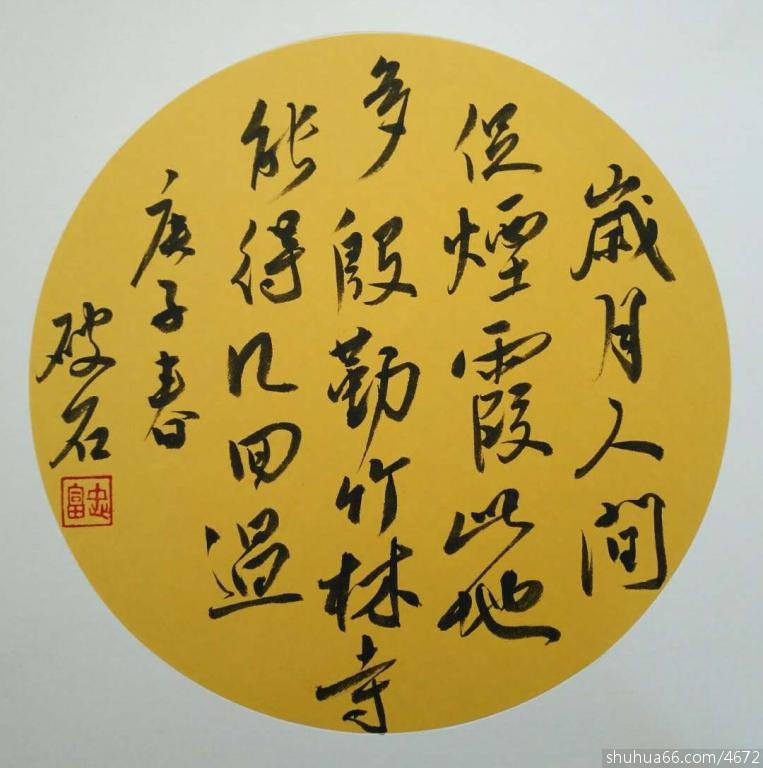 歲月人間
促煙霞此地
多殷勤竹林寺
能得几回過
庚子春
破石
忠富
shuhua66.com/4672